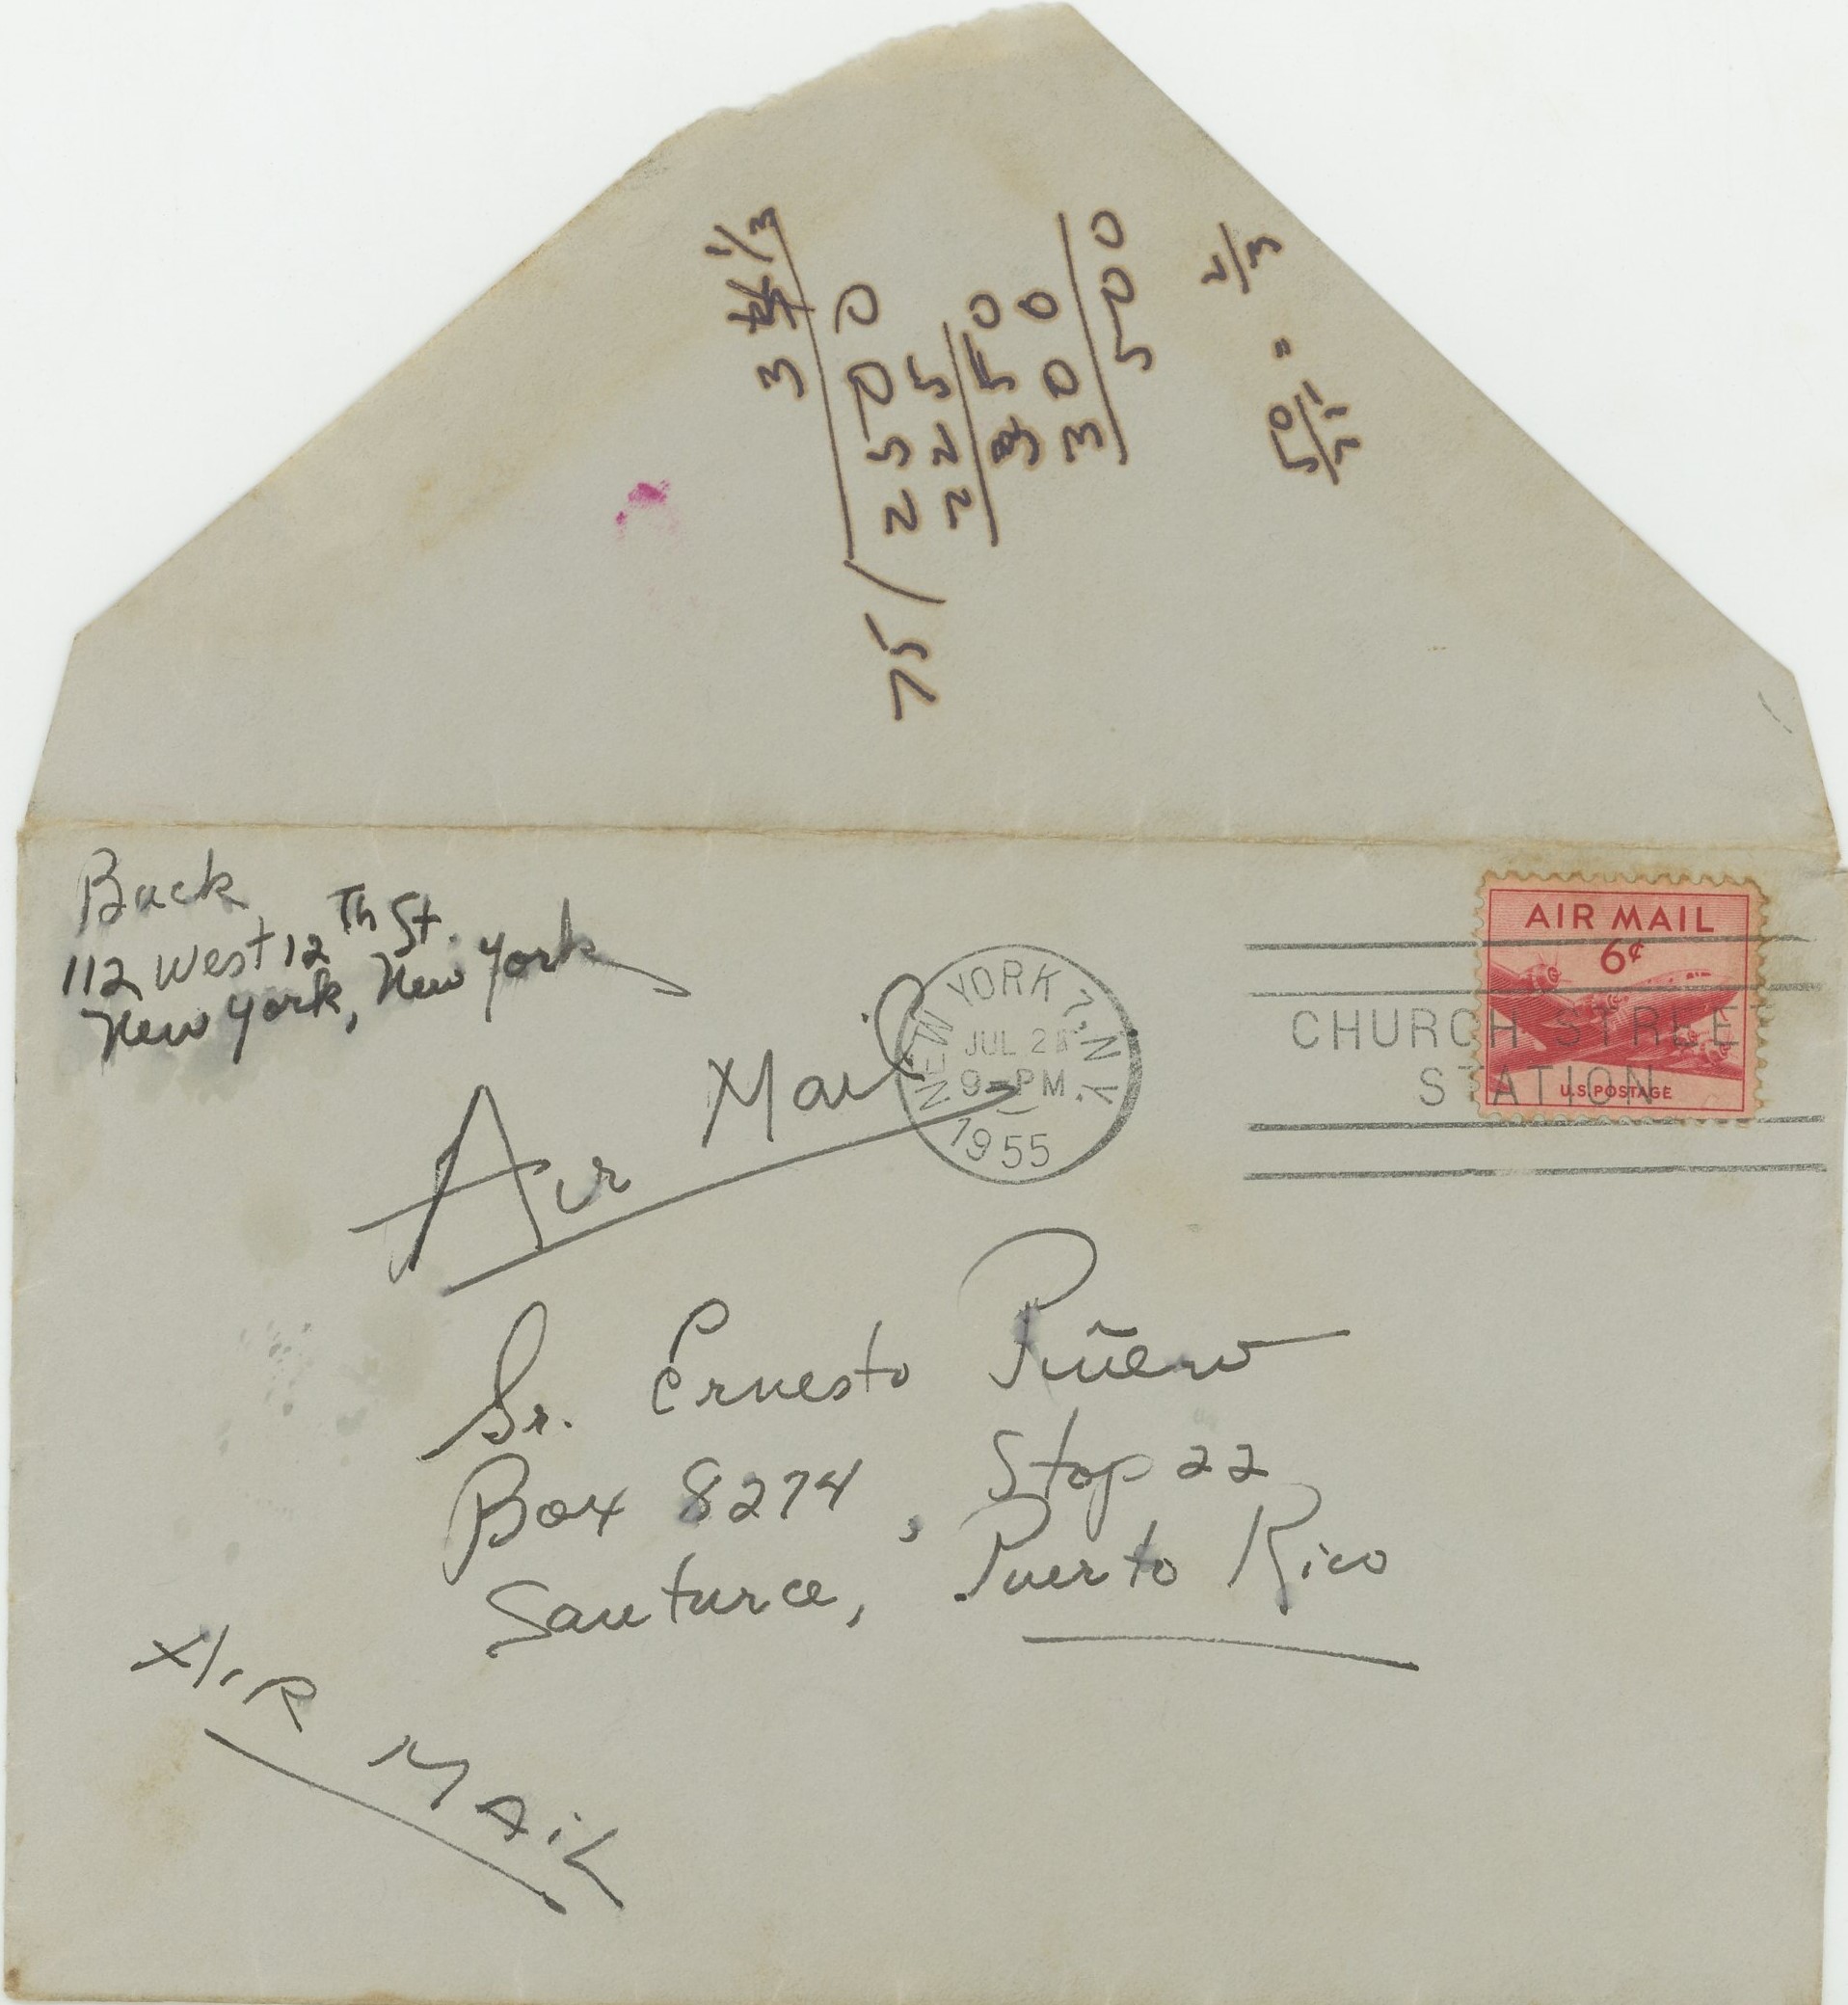 33 1/3
75/ 2500
225
350
300
500
50/75 = 2/3
Buck
112 West 12th St.
New York, New York
Air Mail
NEW YORK 7, N.Y.
JUL
9 - PM
1955
AIR MAIL
6¢
U.S. POSTAGE
CHURCH STREE
STATION
Sr. Ernesto Piñero
Box 8274, Stop 22
Santurce, Puerto Rico
AIR MAIL